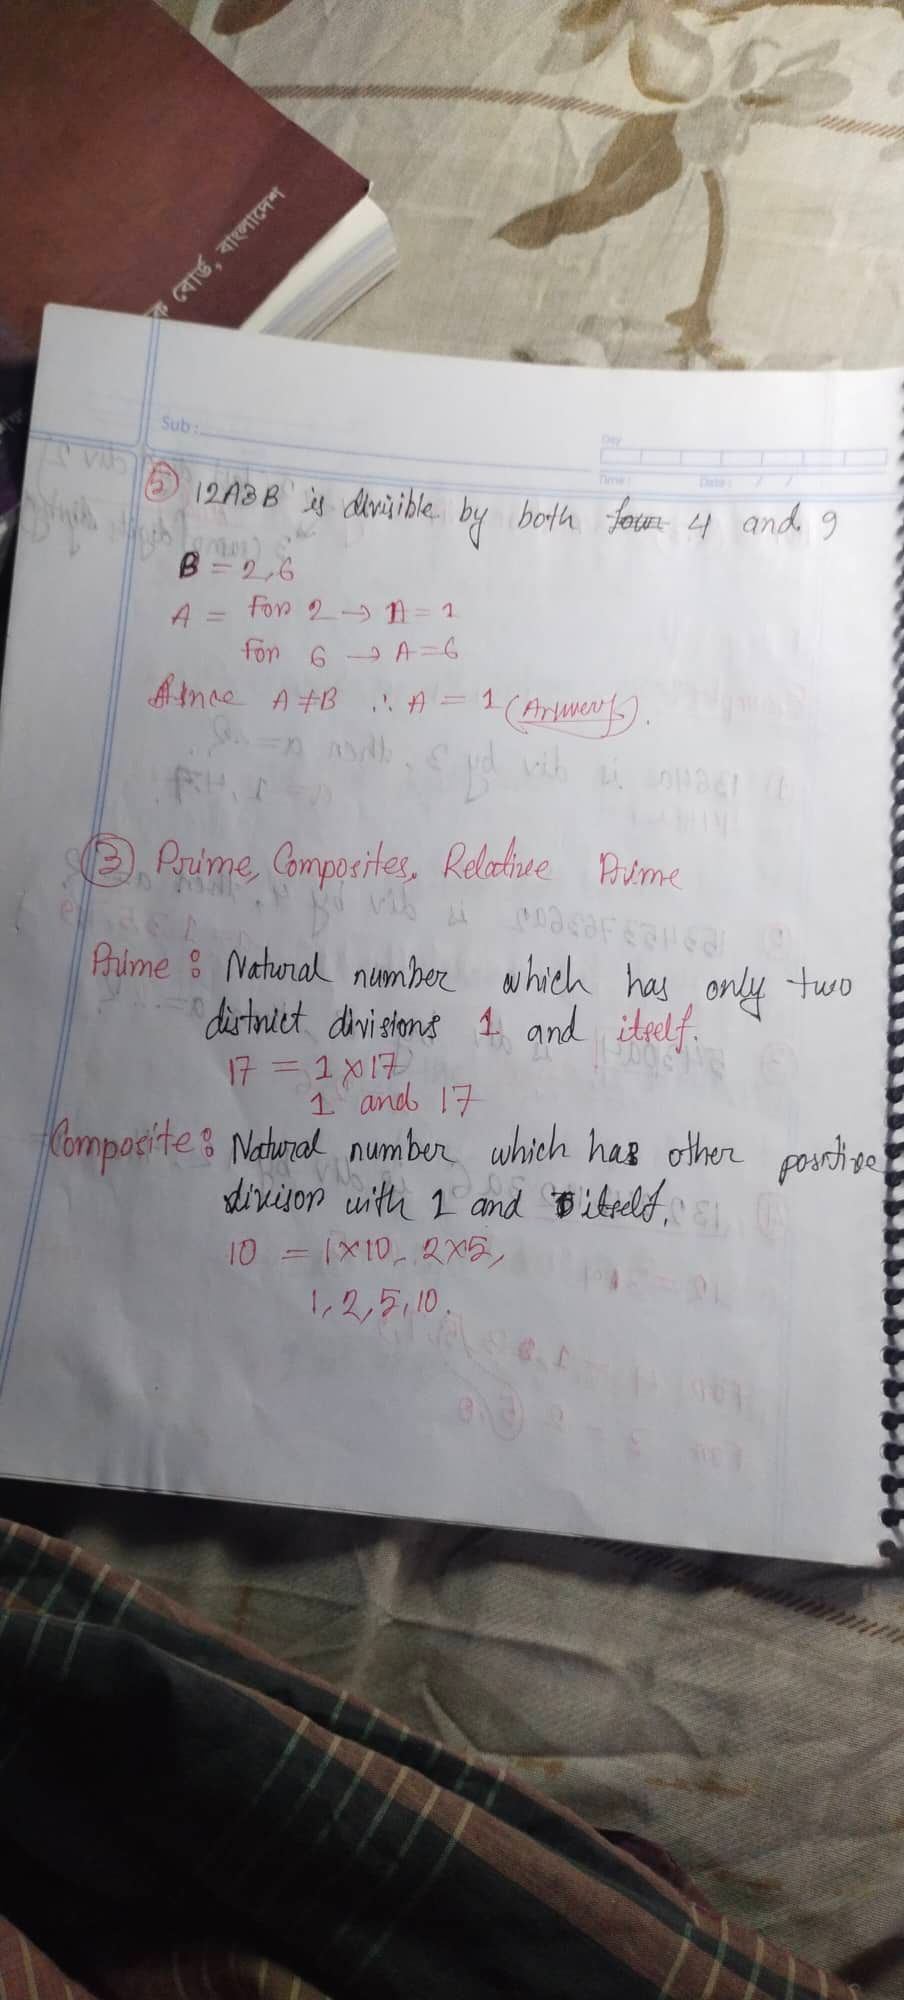 বোর্ড, বাংলাদেশ
Sub:
Day
Time: Date: / /
5 12A3B is divisible by both four 4 and 9
B = 2,6
A = For 2 → A = 1
For 6 → A = 6
Since A ≠ B ∴ A = 1 (Answer).
3 Prime, Composites, Relative Prime
Prime : Natural number which has only two
district divisions 1 and itself.
17 = 1 × 17
1 and 17
Composite : Natural number which has other positive
divisor with 1 and itself.
10 = 1×10, 2×5,
1, 2, 5, 10.